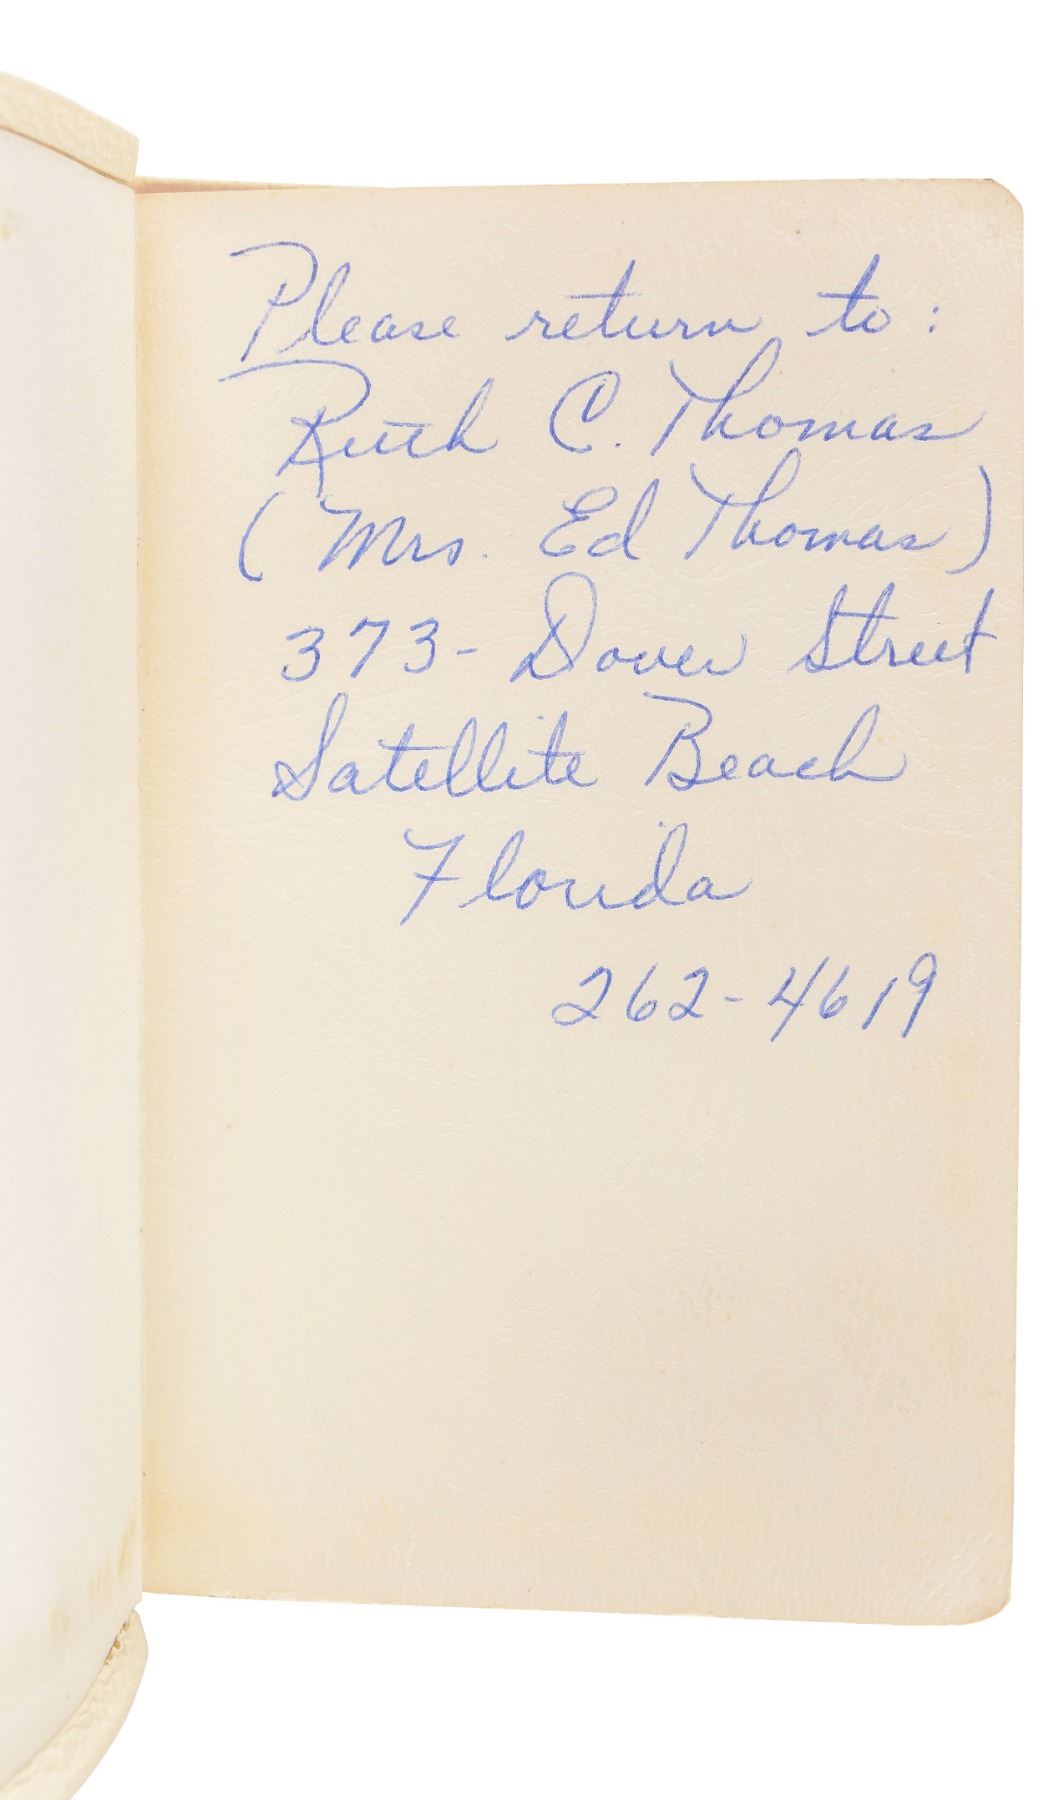 Please return to:
Ruth C. Thomas
(Mrs. Ed Thomas)
373- Dover Street
Satellite Beach
Florida
262-4619